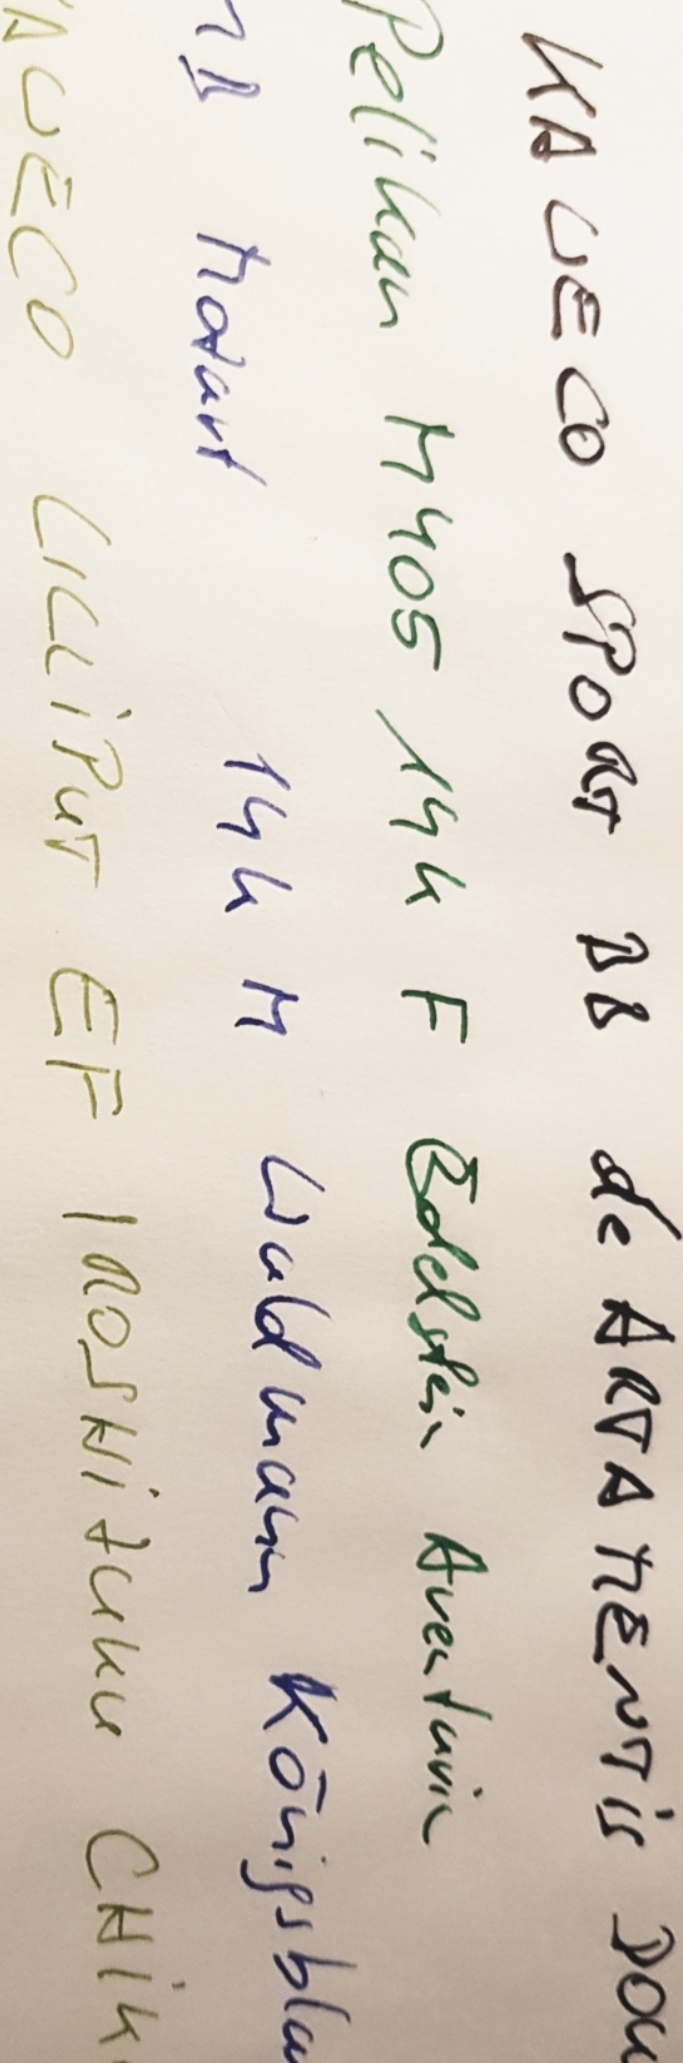 KAWECO SPORT BB de ARTAMENTiS DOU
Pelikan M405 14k F Edelstein Aventurin
MB Mozart 14k M Waldmann Königsblau
KAWECO LiLLiPUT EF IROSHiZUKU CHiK